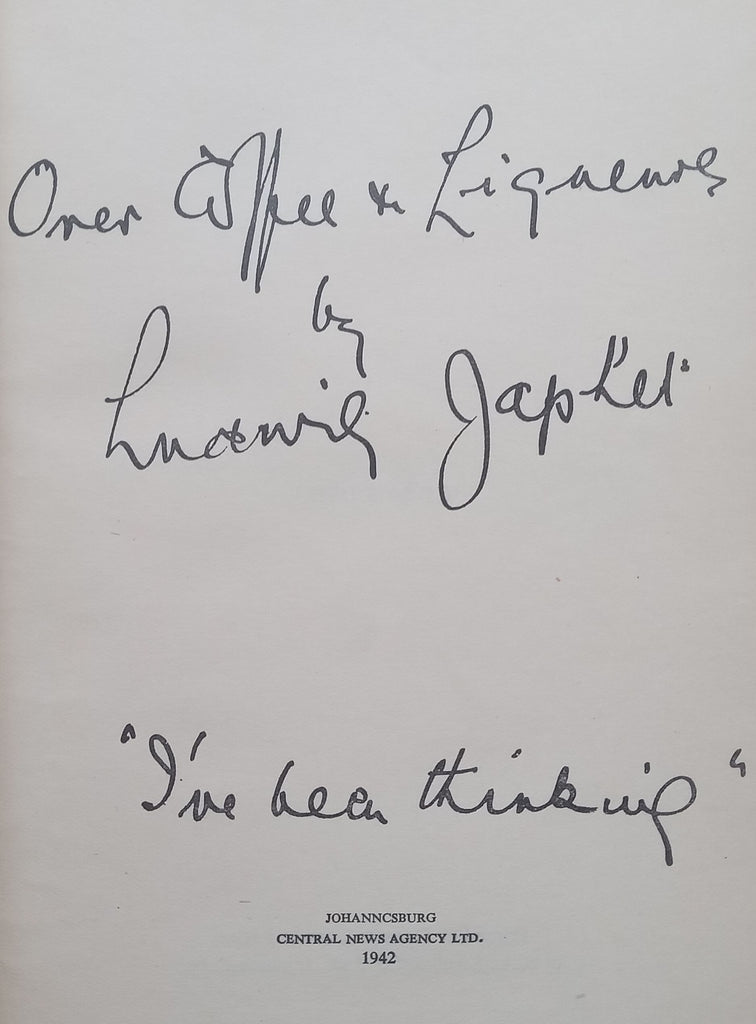 Over Coffee & Liqueurs
by
Ludwig Japhet
"I've been thinking"
JOHANNCSBURG
CENTRAL NEWS AGENCY LTD.
1942